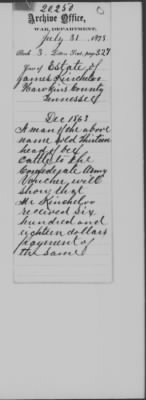 20250
Archive Office,
WAR DEPARTMENT,
July 31. 1878.
Book 3. page 327
Estate of
James Kincheloe
Hawkins County
Tennessee
Dec 1863
A man of the above
name sold thirteen
head of beef
cattle to the
Confederate Army
Voucher will
show that
Mr Kincheloe
received six
hundred and
eighteen dollars
payment of
the same